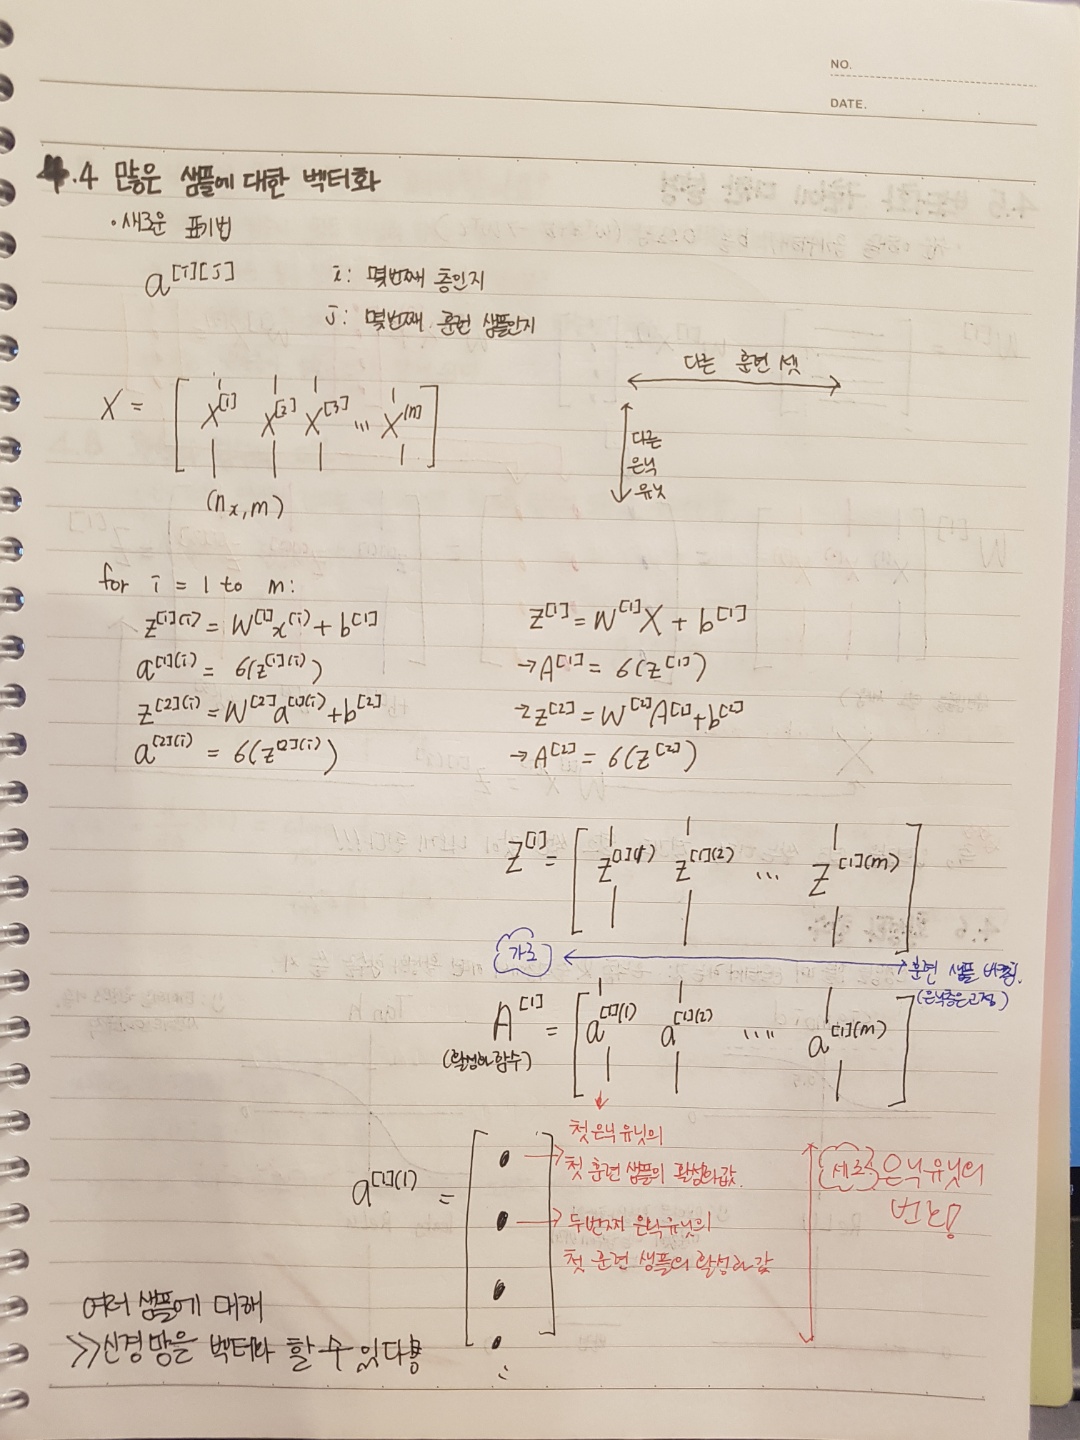 NO.
DATE.
4.4 많은 샘플에 대한 벡터화
·새로운 표기법
a^[i][j]
i: 몇번째 층인지
j: 몇번째 훈련 샘플인지
다른 훈련 셋
다른
은닉
유닛
X = [ X^[1] X^[2] X^[3] ... X^(m) ]
(n_x, m)
for i = 1 to m:
z^[1](i) = W^[1]x^(i) + b^[1]
a^[1](i) = б(z^[1](i))
z^[2](i) = W^[2]a^[1](i) + b^[2]
a^[2](i) = б(z^[2](i))
z^[1] = W^[1]X + b^[1]
→A^[1] = б(z^[1])
→z^[2] = W^[2]A^[1] + b^[2]
→A^[2] = б(z^[2])
Z^[1] = [ z^[1](1) z^[1](2) ... z^[1](m) ]
가로
훈련 샘플 바뀜.
(은닉층은 고정)
A^[1] = [ a^[1](1) a^[1](2) .... a^[1](m) ]
(활성화 함수)
a^[1](1) =
첫 은닉 유닛의
첫 훈련 샘플의 활성화 값.
두번째 은닉 유닛의
첫 훈련 샘플의 활성화 값
세로 은닉 유닛의
번호!
여러 샘플에 대해
>>신경망을 벡터화 할 수 있다용